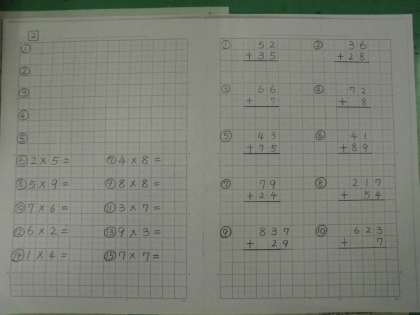 2
①
②
③
④
⑤
⑥ 2×5= ⑦ 4×8=
⑧ 5×9= ⑨ 8×8=
⑩ 7×6= ⑪ 3×7=
⑫ 6×2= ⑬ 9×3=
⑭ 1×4= ⑮ 7×7=
① 52 ② 36
+35 +28
③ 66 ④ 72
+ 7 + 8
⑤ 43 ⑥ 41
+75 +89
⑦ 79 ⑧ 217
+24 + 54
⑨ 837 ⑩ 623
+ 29 + 7